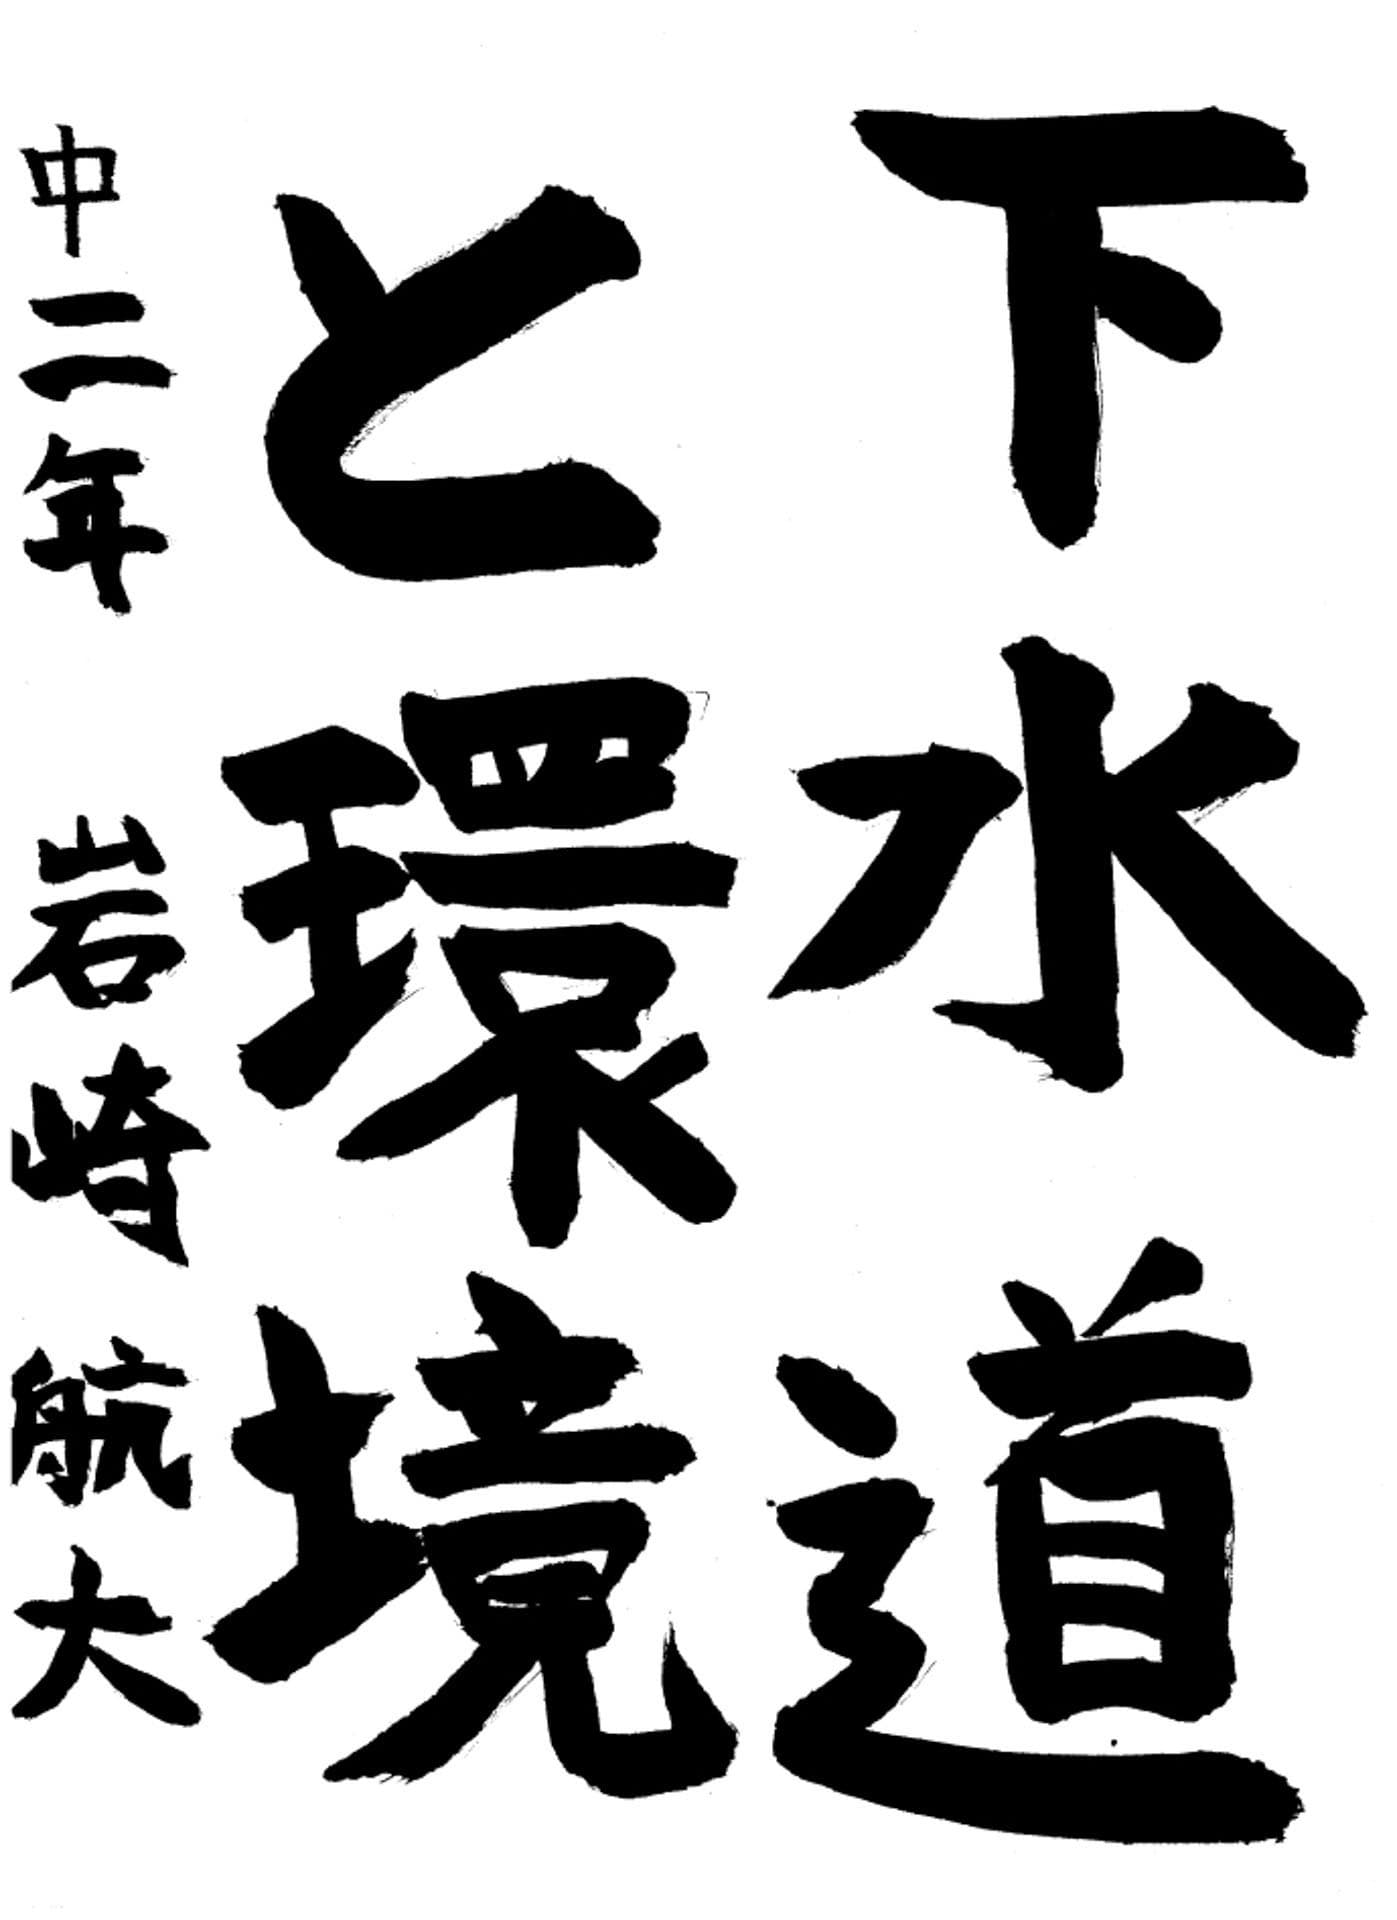 下水道
と環境
中二年 岩崎航大